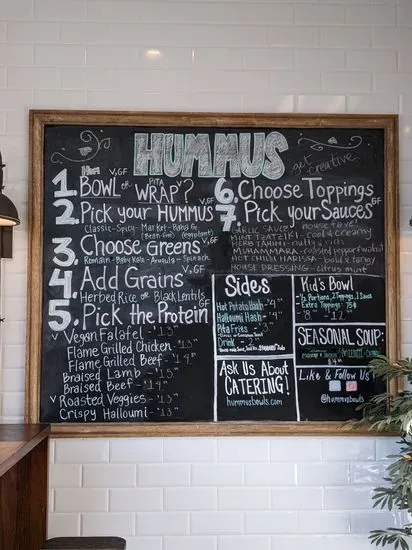 HUMMUS
get creative
1. Bowl or PITA WRAP? V
V, GF
2. Pick your HUMMUS V, GF
Classic - Spicy - Market - Baba G
(Beet-fm) (eggplant)
3. Choose Greens V, GF
Romain - Baby Kale - Arugula - Spinach
4. Add Grains V, GF
Herbed Rice or Black Lentils GF
5. Pick the Protein
V Vegan Falafel - 13
Flame Grilled Chicken - 13
Flame Grilled Beef - 14
Braised Lamb - 15
Braised Beef - 14
V Roasted Veggies - 13
Crispy Halloumi - 13
6. Choose Toppings
V, GF
7 Pick your Sauces GF
GARLIC SAUCE - house fave
MINT TZATZIKI - cool & creamy
HERB TAHINI - nutty & rich
MUHAMMARA - roasted pepper/walnut
HOT CHILI HARISSA - bold & tangy
HOUSE DRESSING - citrus mint
Sides
Hot Potato Hash - 4
Halloumi Hash - 9
Pita Fries - 3
Drink - 2
Ask Us About
CATERING!
hummusbowls.com
Kid's Bowl
1/2 Portions, 2 Toppings, 1 Sauce
Extra Toppings 75¢
8 - 12
SEASONAL SOUP:
Like & Follow Us!
@hummusbowls